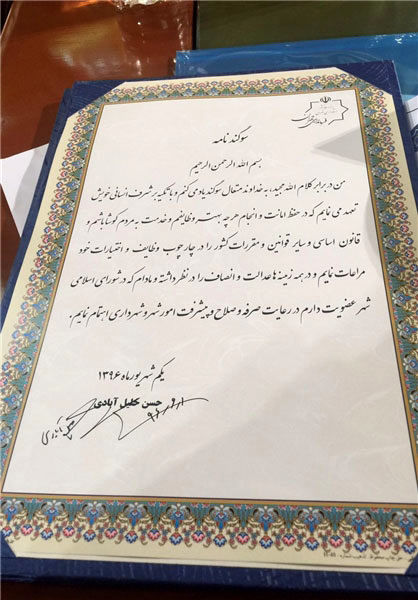 سوگند نامه
بسم الله الرحمن الرحیم
من در برابر کلام الله مجید، به خداوند متعال سوگند یاد می کنم و با تکیه بر شرف انسانی خویش
تعهد می نمایم که در حفظ امانت و انجام هر چه بهتر وظایفم و خدمت به مردم کوشا باشم و
قانون اساسی و سایر قوانین و مقررات کشور را در چارچوب وظایف و اختیارات خود
مراعات نمایم و در همه زمینه ها عدالت و انصاف را در نظر داشته و مادام که در شورای اسلامی
شهر عضویت دارم در رعایت صرفه و صلاح و پیشرفت امور شهر و شهرداری اهتمام نمایم.
یکم شهریور ماه ۱۳۹۶
حسن خلیل آبادی